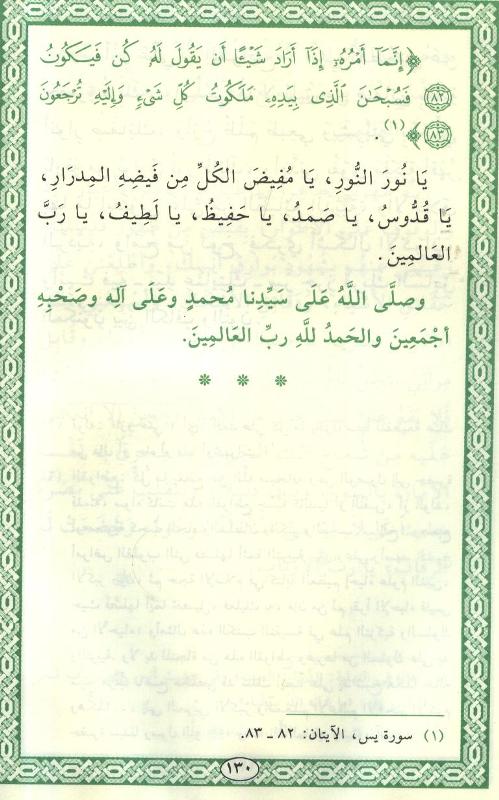 ﴿إِنَّمَآ أَمْرُهُۥٓ إِذَآ أَرَادَ شَيْـًٔا أَن يَقُولَ لَهُۥ كُن فَيَكُونُ
﴿٨٢﴾ فَسُبْحَـٰنَ ٱلَّذِى بِيَدِهِۦ مَلَكُوتُ كُلِّ شَىْءٍ وَإِلَيْهِ تُرْجَعُونَ
﴿٨٣﴾﴾(١).
يَا نُورَ النُّورِ، يَا مُفِيضَ الكُلِّ مِن فَيضِهِ المِدرَارِ،
يَا قُدُّوسُ، يا صَمَدُ، يا حَفِيظُ، يا لَطِيفُ، يا رَبَّ
العَالمِينَ.
وصلَّى اللَّهُ عَلَى سَيِّدِنا مُحمدٍ وعَلَى آلِه وصَحْبِهِ
أجْمَعِينَ والحَمدُ للَّهِ ربِّ العَالمِينَ.
* * *
(١) سورة يس، الآيتان: ٨٢ ـ ٨٣.
١٣٠